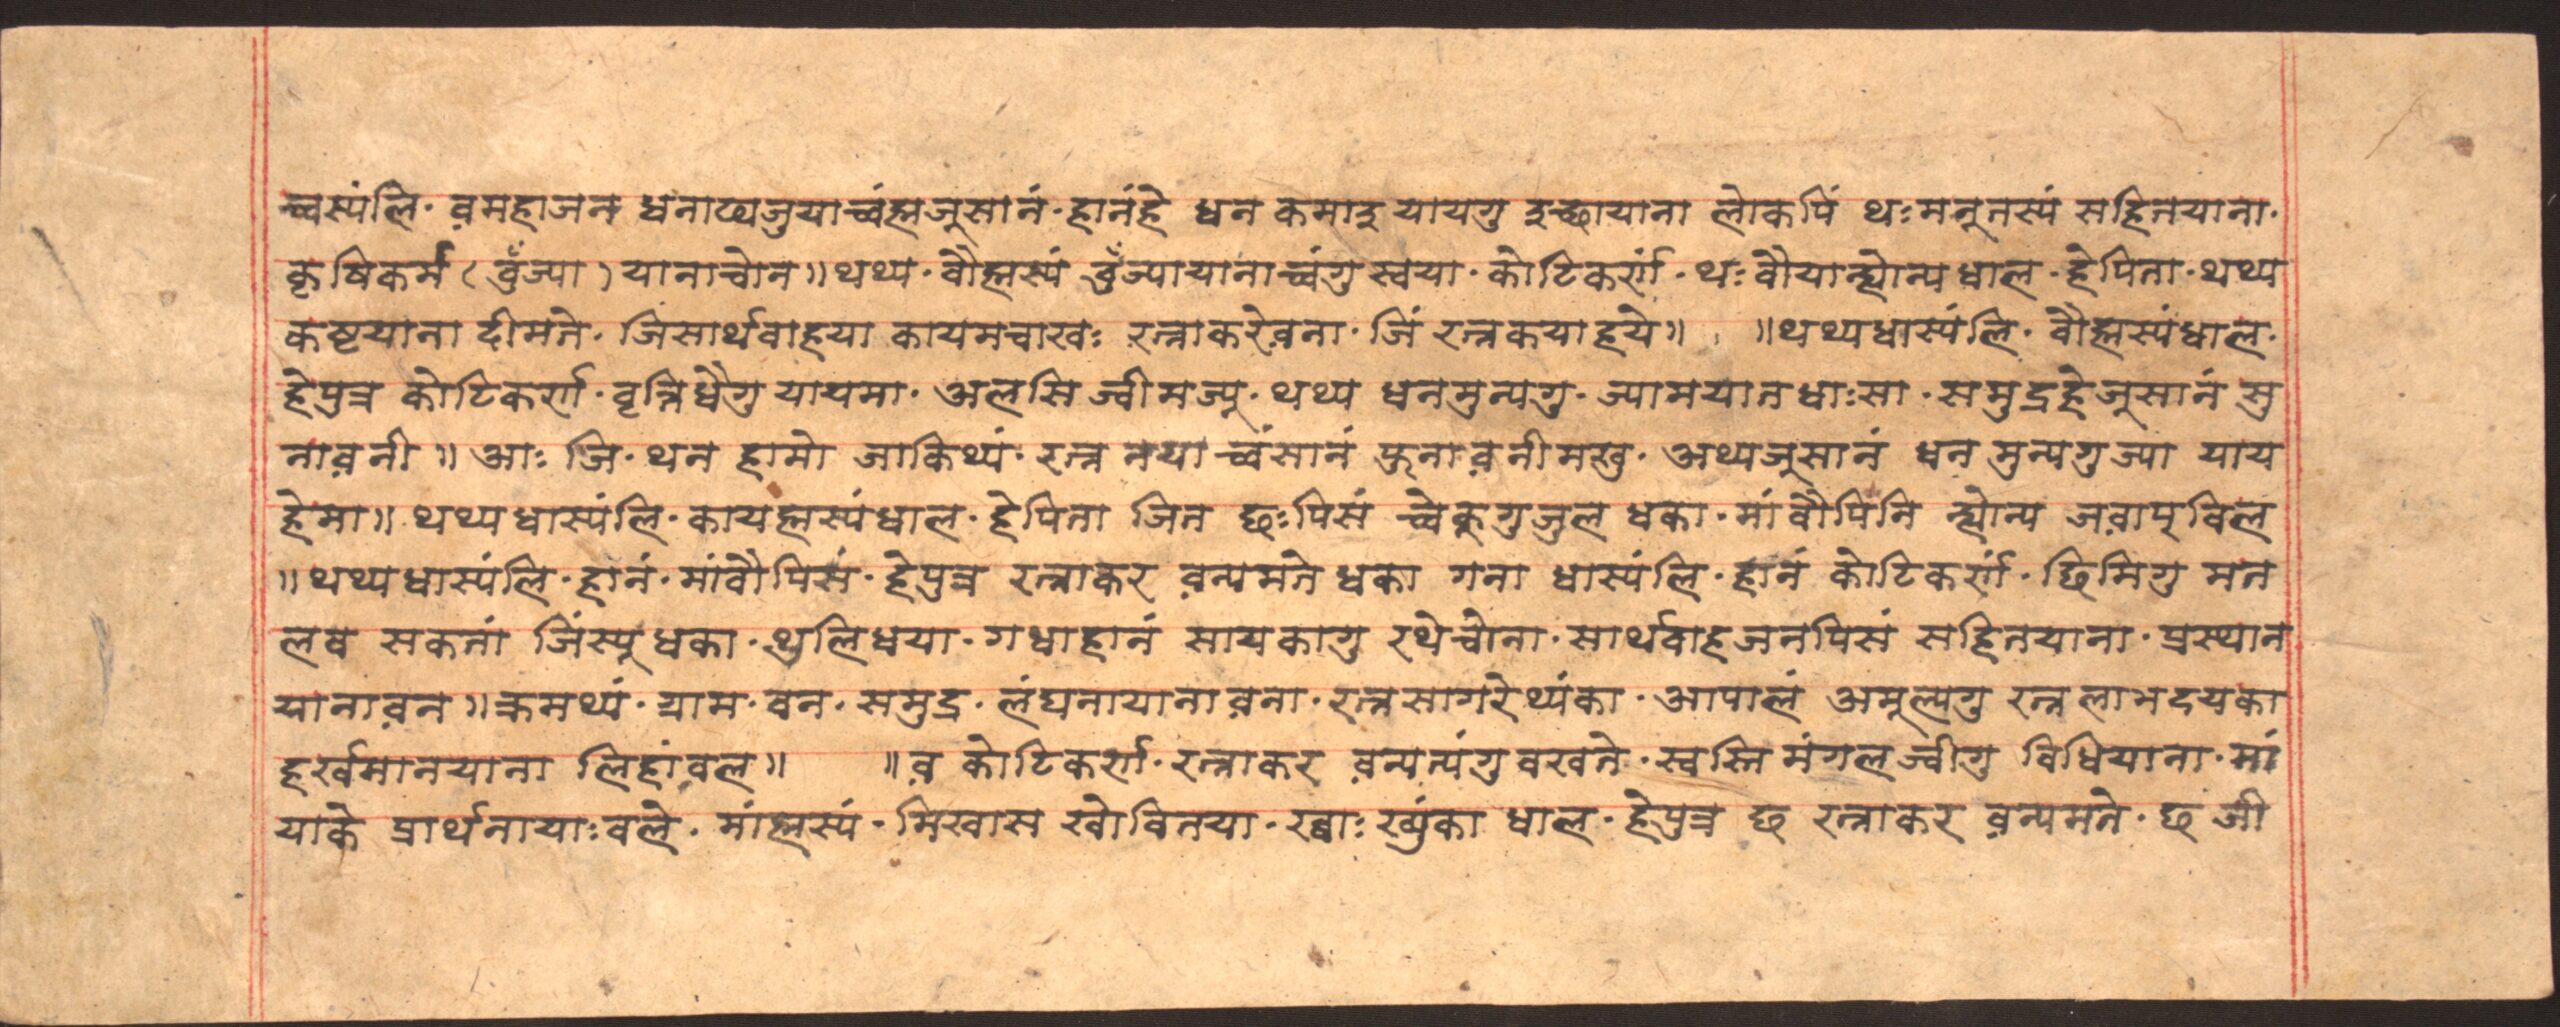 च्वस्यंलि· व़महाजन धनाढ्यजुयाच्वंह्मजूसानं· हानंहे धन कमाइ यायगु इच्छायाना लोकपिं थःमनूतस्यं सहितयाना·
कृषिकर्म (बुँज्या) यानाचोन॥ थथ्य· बौह्मस्यं बुँज्यायानाच्वंगु स्वया· कोटिकर्णं· थः बौयान्ह्योन्य धाल· हेपिता· थथ्य
कष्टयाना दीमते· जिसार्थवाहया कायमचाखः रत्नाकरेव़ना· जिं रत्नकयाहये॥ ॥थथ्यधास्यंलि· बौह्मस्यंधाल·
हेपुत्र कोटिकर्ण· वृत्तिधैगु यायमा· अलसि ज्वीमज्यू· थथ्य धनमुन्यगु· ज्यामयातधाःसा· समुद्रहेजूसानं सु
नाव़नी॥ आः जि· थन हामो जाकिथ्यं· रत्न तयाच्वंसानं फुनाव़नीमखु· अथ्यजूसानं धन मुन्यगुज्या याय
हेमा॥ थथ्यधास्यंलि· कायह्मस्यंधाल· हेपिता जित छःपिसं च्वेकूगुजुल धका· मांबौपिनि न्ह्योन्य जव़ाप् बिल
॥थथ्यधास्यंलि· हानं· मांबौपिसं· हेपुत्र रत्नाकर व़न्यमते धका गना धास्यंलि· हानं कोटिकर्णं· छिमिगु मन
लव सकतां जिंस्यू धका· थुलिधया· गधाहानं सायकागु रथेचोना· सार्थवाहजनपिसं सहितयाना· प्रस्थान
यानाव़न॥ क्रमथ्यं· ग्राम· वन· समुद्र· लंघनायानाव़ना· रत्नसागरेथ्यंका· आपालं अमूल्यगु रत्नलाभदयका
हर्खमानयाना लिहांव़ल॥ ॥व़ कोटिकर्ण· रत्नाकर व़न्यत्यंगु बखते· स्वस्ति मंगलज्वीगु विधियाना· मां
याके प्रार्थनायाःबले· मांह्मस्यं· मिखास खोबितया· ख्वाः ख्युंका धाल· हेपुत्र छ रत्नाकर व़न्यमते· छ जी